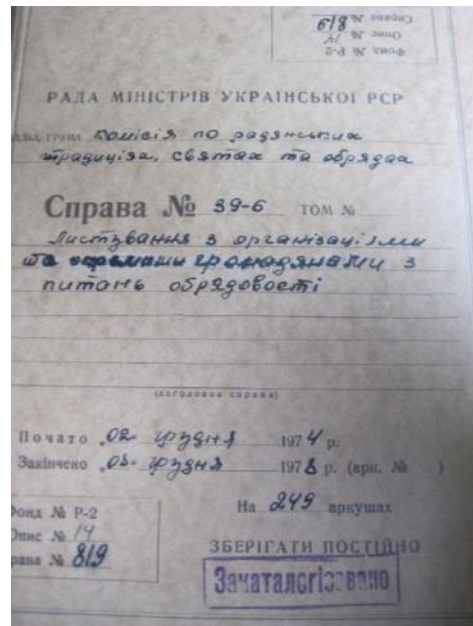 Фонд № Р-2
Опис № 14
Справа № 819
РАДА МІНІСТРІВ УКРАЇНСЬКОЇ РСР
ГРУПА Комісія по радянських
традиціях, святах та обрядах
Справа № 39-6 ТОМ №
Листування з організаціями
та окремими громадянами з
питань обрядовості
(заголовок справи)
Почато „02 грудня 1974 р.
Закінчено „03 грудня 1978 р. (арк. № )
Фонд № Р-2
На 249 аркушах
Опис № 14
Справа № 819
ЗБЕРІГАТИ ПОСТІЙНО
Закаталогізовано